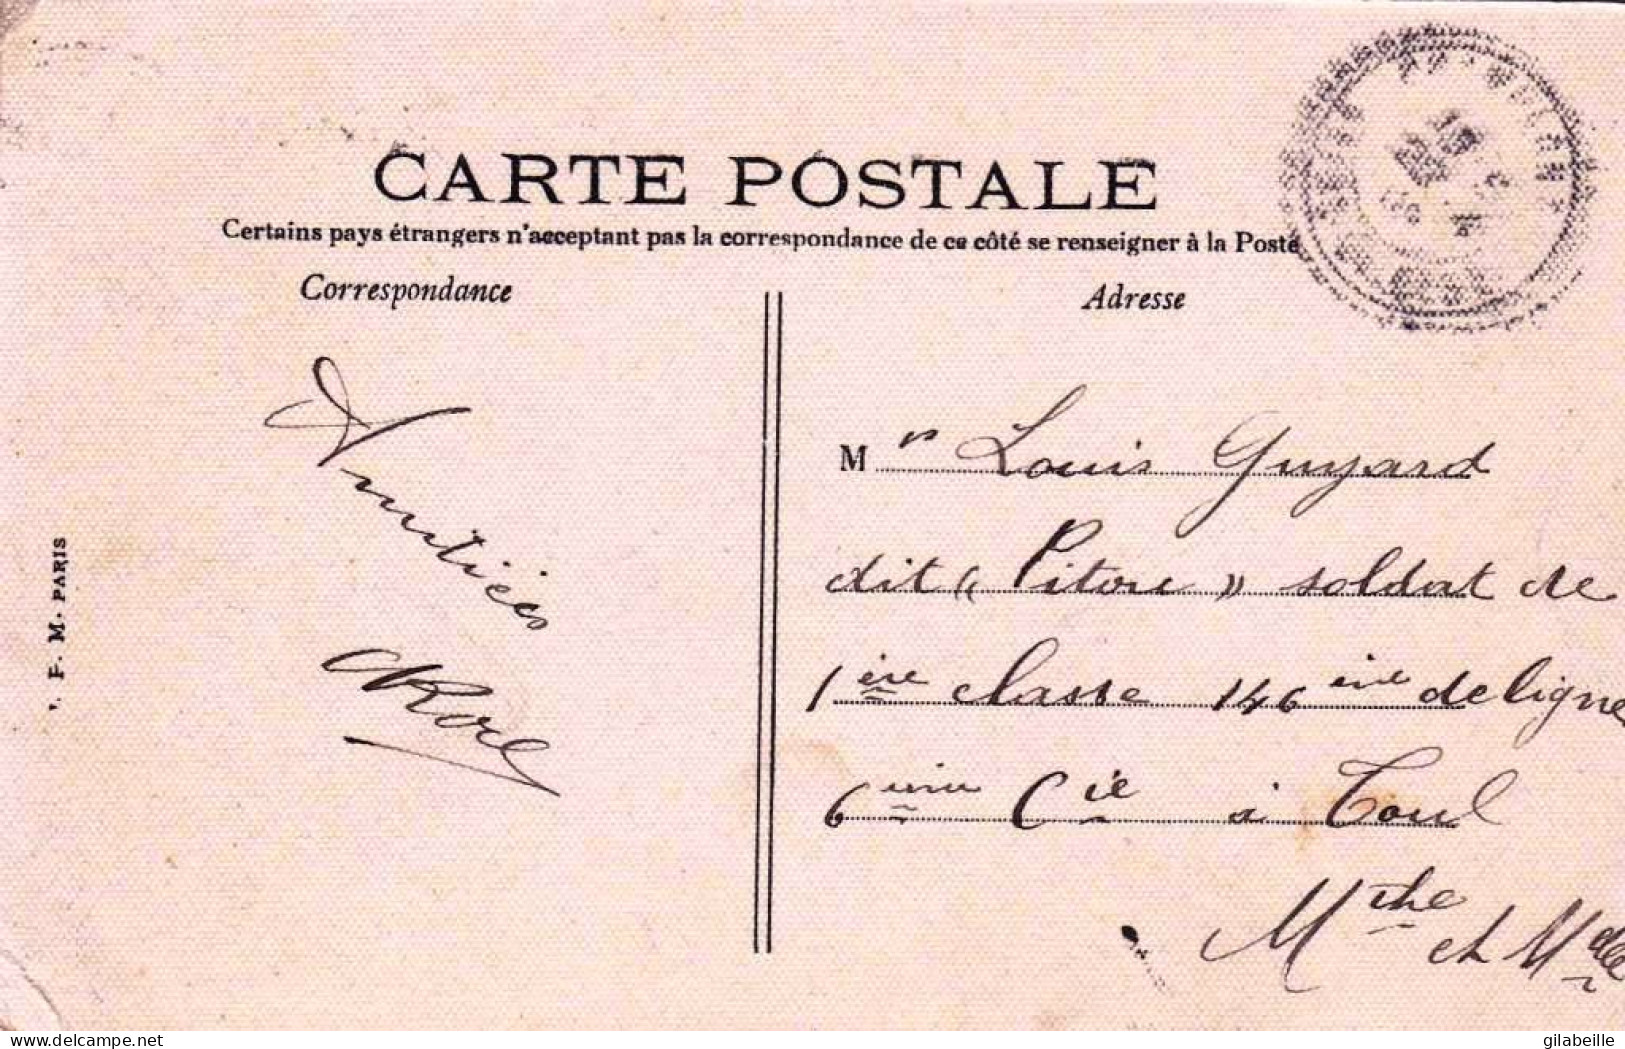 CARTE POSTALE
Certains pays étrangers n'acceptent pas la correspondance de ce côté se renseigner à la Poste
Correspondance
Adresse
Amitiés
F. M. PARIS
Mr Louis Guyard
dit « Pitou » soldat de
1ère classe 146ème de ligne
6ème Cie à Toul
Mthe et Mdlle
www.delcampe.net
gilabeille